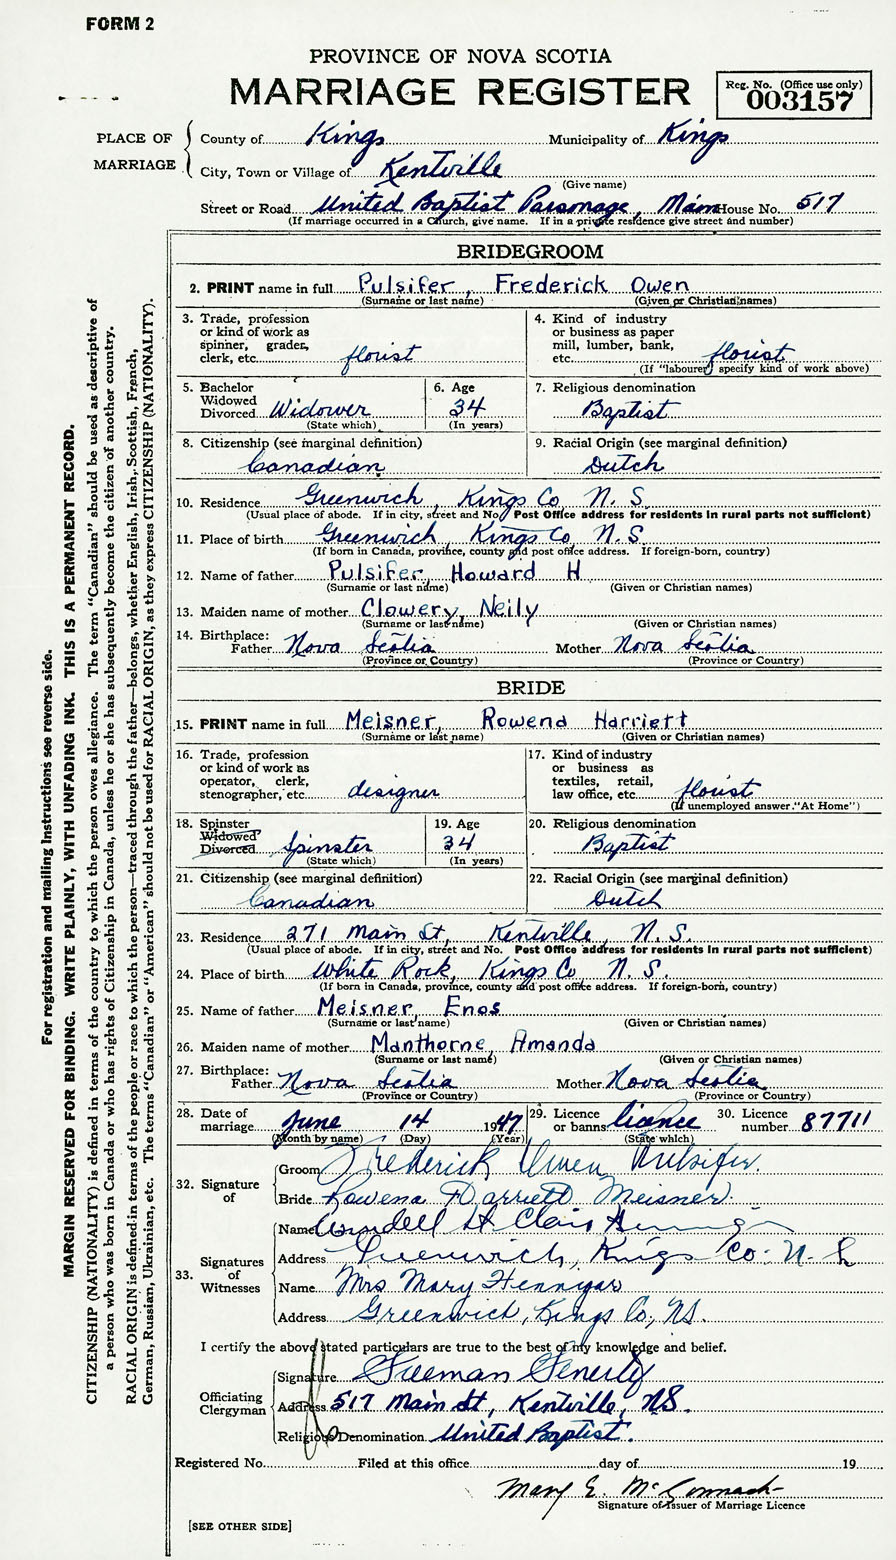 FORM 2
PROVINCE OF NOVA SCOTIA
MARRIAGE REGISTER
Reg. No. (Office use only)
003157
PLACE OF MARRIAGE
County of Kings Municipality of Kings
City, Town or Village of Kentville
(Give name)
Street or Road United Baptist Parsonage, Main House No. 517
(If marriage occurred in a Church, give name. If in a private residence give street and number)
BRIDEGROOM
2. PRINT name in full Pulsifer, Frederick Owen
(Surname or last name) (Given or Christian names)
3. Trade, profession
or kind of work as
spinner, grader,
clerk, etc. florist
4. Kind of industry
or business as paper
mill, lumber, bank,
etc. florist
(If "labourer" specify kind of work above)
5. Bachelor
Widowed
Divorced Widower
(State which)
6. Age
34
(In years)
7. Religious denomination
Baptist
8. Citizenship (see marginal definition)
Canadian
9. Racial Origin (see marginal definition)
Dutch
10. Residence Greenwich, Kings Co N. S.
(Usual place of abode. If in city, street and No. Post Office address for residents in rural parts not sufficient)
11. Place of birth Greenwich, Kings Co, N. S.
(If born in Canada, province, county and post office address. If foreign-born, country)
12. Name of father Pulsifer, Howard H
(Surname or last name) (Given or Christian names)
13. Maiden name of mother Clowery, Neily
(Surname or last name) (Given or Christian names)
14. Birthplace:
Father Nova Scotia Mother Nova Scotia
(Province or Country) (Province or Country)
BRIDE
15. PRINT name in full Meisner, Rowena Harriett
(Surname or last name) (Given or Christian names)
16. Trade, profession
or kind of work as
operator, clerk,
stenographer, etc. designer
17. Kind of industry
or business as
textiles, retail,
law office, etc. florist
(If unemployed answer "At Home")
18. Spinster
Widowed
Divorced Spinster
(State which)
19. Age
34
(In years)
20. Religious denomination
Baptist
21. Citizenship (see marginal definition)
Canadian
22. Racial Origin (see marginal definition)
Dutch
23. Residence 271 Main St, Kentville, N. S.
(Usual place of abode. If in city, street and No. Post Office address for residents in rural parts not sufficient)
24. Place of birth White Rock, Kings Co N. S.
(If born in Canada, province, county and post office address. If foreign-born, country)
25. Name of father Meisner, Enos
(Surname or last name) (Given or Christian names)
26. Maiden name of mother Manthorne, Amanda
(Surname or last name) (Given or Christian names)
27. Birthplace:
Father Nova Scotia Mother Nova Scotia
(Province or Country) (Province or Country)
28. Date of
marriage June 14 1947
(Month by name) (Day) (Year)
29. Licence
or banns licence
(State which)
30. Licence
number 87711
32. Signature of
Groom Frederick Owen Pulsifer.
Bride Rowena Harriett Meisner.
33. Signatures of Witnesses
Name Wendell St Clair
Address Greenwich, Kings Co. N. S
Name Mrs Mary Hennigar
Address Greenwich, Kings Co, NS.
I certify the above stated particulars are true to the best of my knowledge and belief.
Officiating Clergyman
Signature Freeman Fenerty
Address 517 Main St, Kentville, NS.
Religious Denomination United Baptist.
Registered No. Filed at this office day of 19
Mary E. McCormack
Signature of Issuer of Marriage Licence
[SEE OTHER SIDE]
For registration and mailing instructions see reverse side.
MARGIN RESERVED FOR BINDING. WRITE PLAINLY, WITH UNFADING INK. THIS IS A PERMANENT RECORD.
CITIZENSHIP (NATIONALITY) is defined in terms of the country to which the person owes allegiance. The term "Canadian" should be used as descriptive of
a person who was born in Canada or who has rights of Citizenship in Canada, unless he or she has subsequently become the citizen of another country.
RACIAL ORIGIN is defined in terms of the people or race to which the person—traced through the father—belongs, whether English, Irish, Scottish, French,
German, Russian, Ukrainian, etc. The terms "Canadian" or "American" should not be used for RACIAL ORIGIN, as they express CITIZENSHIP (NATIONALITY).